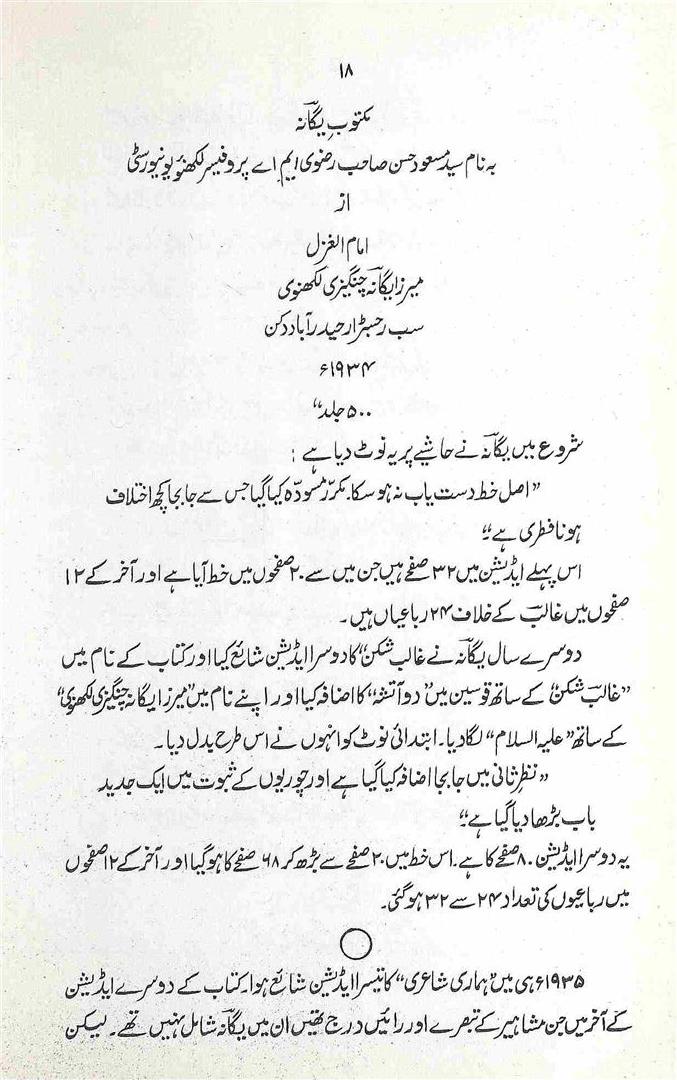 ۱۸
مکتوبِ یگانہؔ
بہ نام سید مسعود حسن صاحب رضوی ایم اے پروفیسر لکھنؤ یونیورسٹی
از
امام الغزل
میرزا یگانہؔ چنگیزی لکھنوی
سب رجسٹرار حیدرآباد دکن
۱۹۳۴ء
۵۰۰ جلد“
شروع میں یگانہؔ نے حاشیے پر یہ نوٹ دیا ہے :
”اصل خط دست یاب نہ ہو سکا۔ مکرر مسودہ کیا گیا جس سے جا بجا کچھ اختلاف
ہونا فطری ہے۔“
اس پہلے ایڈیشن میں ۳۲ صفحے ہیں جن میں سے ۲۰ صفحوں میں خط آیا ہے اور آخر کے ۱۲
صفحوں میں غالبؔ کے خلاف ۲۴ رباعیاں ہیں۔
دوسرے سال یگانہؔ نے غالب شکن“ کا دوسرا ایڈیشن شائع کیا اور کتاب کے نام میں
”غالبؔ شکن“ کے ساتھ قوسین میں ”دو آتشہ“ کا اضافہ کیا اور اپنے نام میں ”میرزا یگانہؔ چنگیزی لکھنوی“
کے ساتھ ”علیہ السلام“ لگا دیا۔ ابتدائی نوٹ کو انہوں نے اس طرح بدل دیا۔
”نظرِ ثانی میں جا بجا اضافہ کیا گیا ہے اور چوریوں کے ثبوت میں ایک جدید
باب بڑھا دیا گیا ہے۔“
یہ دوسرا ایڈیشن ۸۰ صفحے کا ہے۔ اس خط میں ۲۰ صفحے سے بڑھ کر ۶۸ صفحے کا ہو گیا اور آخر کے ۱۲ صفحوں
میں رباعیوں کی تعداد ۲۴ سے ۳۲ ہو گئی۔
۱۹۳۵ء ہی میں ”ہماری شاعری“ کا تیسرا ایڈیشن شائع ہوا۔ کتاب کے دوسرے ایڈیشن
کے آخر میں جن مشاہیر کے تبصرے اور رائیں درج تھیں ان میں یگانہؔ شامل نہیں تھے۔ لیکن